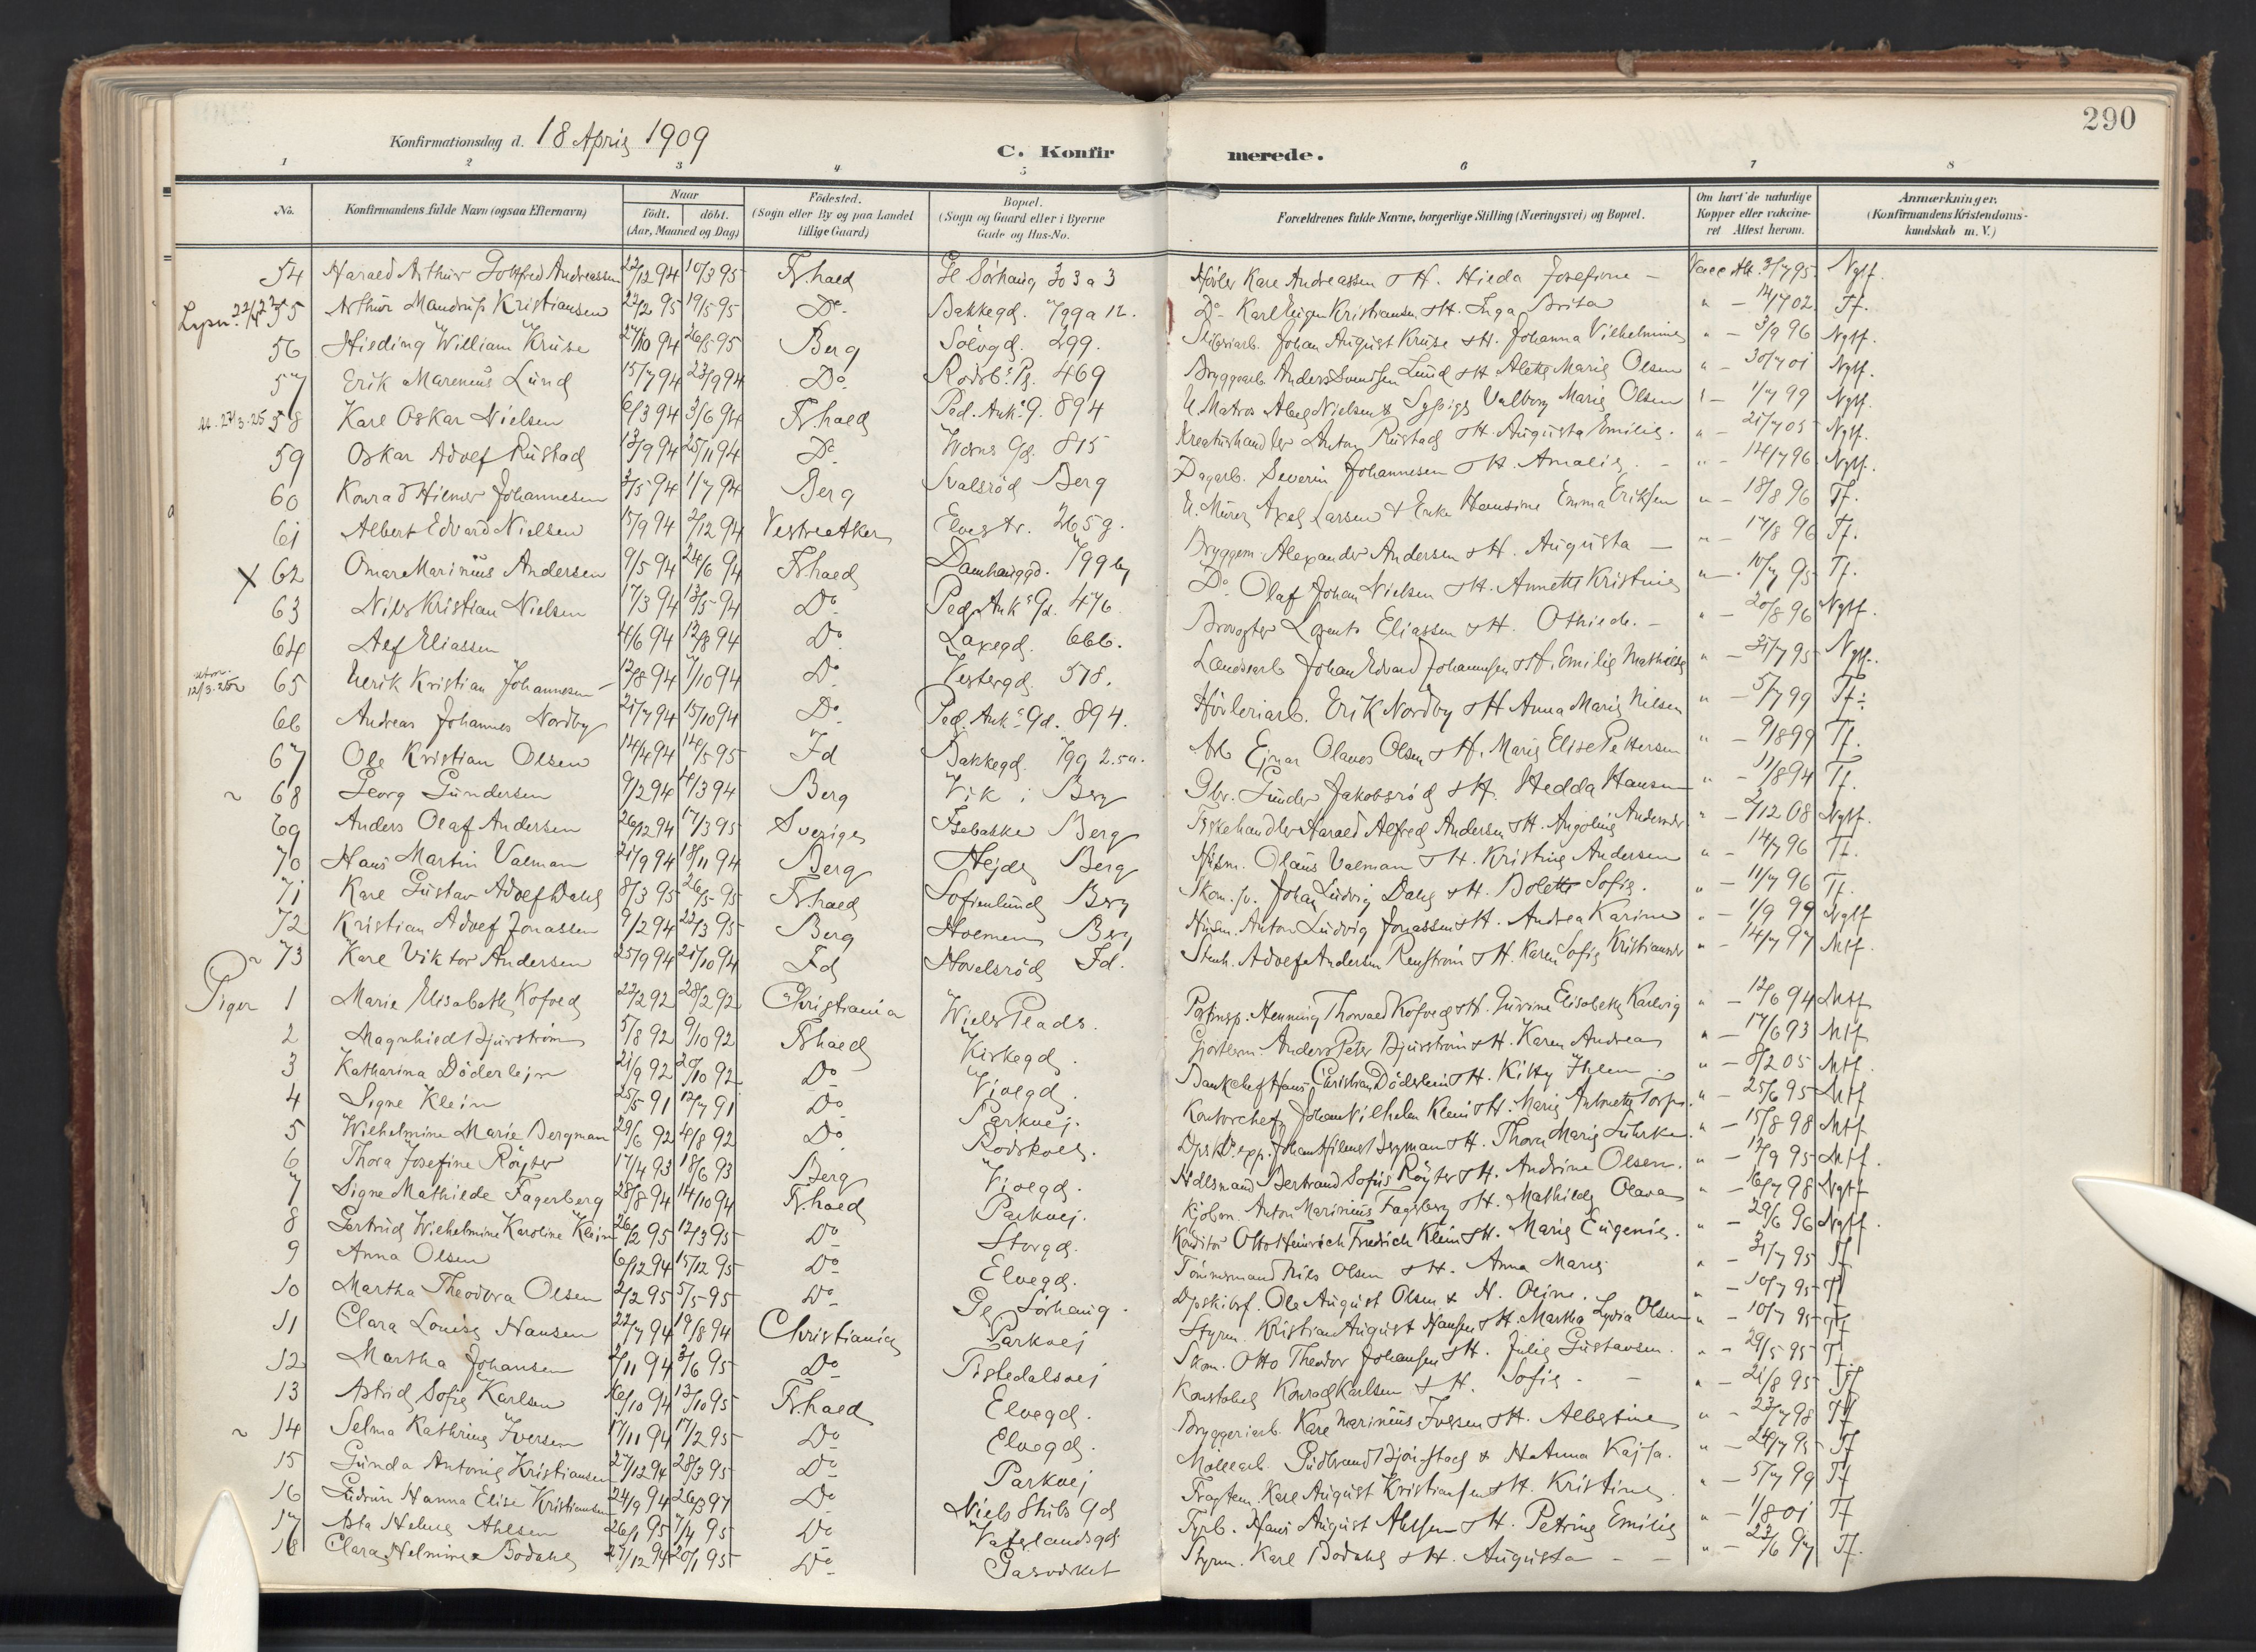 290
Konfirmationsdag d. 18 April 1909
C. Konfirmerede.
1 2 3 4 5 6 7 8
No. Konfirmandens fulde Navn (ogsaa Efternavn) Naar födt. döbt. (Aar, Maaned og Dag) Födested. (Sogn eller By og paa Landet tillige Gaard) Bopæl. (Sogn og Gaard eller i Byerne Gade og Hus-No. Forældrenes fulde Navne, borgerlige Stilling (Næringsvei) og Bopæl. Om havt de naturlige Kopper eller vakcineret Attest herom. Anmærkninger, (Konfirmandens Kristendomskundskab m. V.)
54 Harald Arthur Gottfred Andreassen 22/12 94 10/3 95 Fr.hald Gl Sörhaug Hövler Karl Andreassen & H. Hilda Josefine Vacc Att. Ngtf.
55 Arthur Mandrup Kristiansen 22/2 95 19/5 95 Do Bakkegd. 799 a 12. Do Karl Kristiansen & H. Inga Brita " - 14/7 02 Tf.
56 Hilding William Kruse 27/10 94 26/5 95 Berg Sölvgd. 299. Johan August Kruse & H. Johanna Vilhelmine " - 3/9 96 Ngtf.
57 Erik Marenius Lund 15/7 94 23/9 94 Do Rödsb. Pl. 469 Bryggearb. Anders Svendsen Lund & H Alette Marie Olsen " - 30/7 01 Ngtf.
58 Karl Oskar Nielsen 6/3 94 3/6 94 Fr.hald Ped. Ank. G. 894 U. Matros Nielsen & Valborg Marie Olsen - 1/7 99 Ngtf.
59 Oskar Adolf Rustad 13/9 94 25/11 94 Do Gd. 815 Kreaturhandler Anton Rustad & H. Augusta Emilie. " - 21/7 05 Ngtf.
60 Konrad Hilmer Johannesen 3/5 94 1/7 94 Berg Svalsröd Berg Dagarb. Severin Johannesen & H. Amalie. " - 14/7 96 Ngtf.
61 Albert Edvard Nielsen 15/9 94 2/12 94 Vestre Aker Elvestr. 265 g. U. Murer Axel Larsen & Enke Hansine Emma Eriksen " - 18/8 96 Tf.
X 62 Omar Marinius Andersen 9/5 94 24/6 94 Fr.hald Damhauggd. 799 Bryggem. Alexander Andersen & H. Augusta " - 17/8 96 Tf.
63 Nils Kristian Nielsen 17/3 94 13/5 94 Do Ped Ank's Gd. 476. Do Olaf Johan Nielsen & H. Annette Kristine " - 10/7 95 Tf.
64 Alf Eliassen 4/6 94 12/8 94 Do Laxegd. 666. Brovogter Eliassen & H. Othilde. " - 20/8 96 Ngtf.
65 Ulrik Kristian Johannesen 12/8 94 7/10 94 Do Vestergd. 578. Johan Edvard Johannesen & H. Emilie Mathilde " - 31/7 95 Ngtf.
66 Andreas Johannes Nordby 21/7 94 15/10 94 Do Ped. Ank's Gd. 894. Hövleriarb. Erik Nordby & H Anna Marie Nilsen " - 5/7 99 Tf.
67 Ole Kristian Olsen 14/4 94 14/5 95 Id Bakkegd. 799 2.5a. Arb Ejnar Olaves Olsen & H. Marie Elise Pettersen " - 9/8 99 Tf.
68 Georg Gundersen 9/2 94 4/3 94 Berg Vik i Berg Gbr. Gunder Jakobsröd & H. Hedda Hansen " - 11/8 94 Tf.
69 Anders Olaf Andersen 26/12 94 17/3 95 Sverige Isebakke Berg Fiskehandler Harald Alfred Andersen & H. Angoline Andersdr " - 2/12 08 Ngtf.
70 Hans Martin Valman 21/9 94 18/11 94 Berg Hejde Berg Husm. Olaus Valman & H. Kristine Andersen " - 14/7 96 Tf.
71 Karl Gustav Adolf Dahl 8/3 95 26/5 95 Fr.hald Sofienlund Berg Skom. Johan Ludvig Dahl & H. Bolette Sofie. " - 11/7 96 Tf.
72 Kristian Adolf Jonassen 9/12 94 22/3 95 Berg Holmen Berg Husm. Anton Ludvig Jonassen & H. Andrea Karine " - 1/9 99 Ngtf
73 Karl Viktor Andersen 25/9 94 21/10 94 Id Hovelsröd Id. Stenh. Adolf Andersen Renström & H. Karen Sofie Kristiansdr " - 14/7 97 Mtf.
Piger 1 Marie Elisabeth Kofoed 22/2 92 28/2 92 Christiania Wiels Plads. Henning Thorvald Kofoed & H. Gurine Elisabeth " - 12/6 94 Mtf
2 Magnhild Djurström 5/8 92 9/10 92 Fr.hald Kirkegd. Anders Peter Djurström & H. Karen Andrea " - 17/6 93 Mtf
3 Katharina Döderlejn 21/9 92 20/10 92 Do Violgd. Bankchef Hans Christian Döderlein & H. Kitty Ihlen " - 8/2 05 Mtf.
4 Signe Klein 25/5 91 12/7 91 Do Parkvej. Kontorchef Johan Vilhelm Klein & H. Marie Antonette Torp " - 25/6 95 Mtf
5 Wilhelmine Marie Bergman 29/6 92 4/8 92 Do Rödskolen. Johan Hilmer Bergman & H. Thora Marie Luhrke. " - 15/8 98 Mtf
6 Thora Josefine Röyter 17/4 93 18/6 93 Berg Violgd. Hdlsmand Bertrand Sofus Röyter & H. Andrine Olsen. " - 12/9 95 Mtf.
7 Signe Mathilde Fagerberg 28/8 94 14/10 94 Fr.hald Parkvej. Kjöbm. Anton Marinius Fagerberg & H. Mathilde Olava " - 16/7 98 Ngtf
8 Gertrud Wilhelmine Karoline Klein 26/2 95 12/3 95 Do Storgd. Konditor Otto Heinrich Friedrich Klein & H. Marie Eugenie. " - 29/6 96 Ngtf.
9 Anna Olsen 6/12 94 15/12 95 Do Elvegd. Tömmermand Nils Olsen & H. Anna Marie " - 31/7 95 Tf
10 Martha Theodora Olsen 2/2 95 5/5 95 Do Gl Sörhaug. Dpskibsf. Ole August Olsen & H. Oline. " - 10/7 95 Tf
11 Clara Louise Hansen 22/7 94 19/8 94 Christiania Parkvej Styrm. Kristian August Hansen & H. Martha Lydia Olsen " - 10/7 95 Tf
12 Martha Johansen 2/11 94 3/6 95 Do Tistedalsvej Skom. Otto Theodor Johansen & H. Julie Gustavsen. " - 29/5 95 Tf
13 Astrid Sofie Karlsen 16/10 94 13/10 95 Fr.hald Elvegd. Konstabel Konrad Karlsen & H. Sofie " - 21/8 95 Tf
14 Selma Kathrine Iversen 17/11 94 17/2 95 Do Elvegd. Bryggeriarb. Karl Marinius Iversen & H. Albertine " - 23/7 98 Tf
15 Gunda Antonie Kristiansen 27/12 94 28/3 95 Do Parkvej Möllearb. Gudbrand Björnstad & H Anna Kajsa. " - 24/7 95 Tf
16 Gudrun Hanna Elise Kristiansen 24/9 94 26/3 97 Do Niels Stubs Gd Fragtem. Karl August Kristiansen & H. Kristine. " - 5/7 99 Tf
17 Asta Helene Ahlsen 26/1 95 7/4 95 Do Vaterlandsgd Fyrb. Hans August Ahlsen & H. Petrine Emilie " - 1/8 01 Tf
18 Clara Helmine Bodahl 27/12 94 20/1 95 Do Gasverket Styrm. Karl Bodahl & H. Augusta " - 23/6 97 Tf.